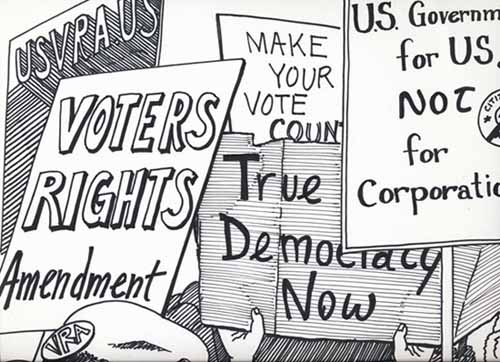 USVRA.US
VOTERS
RIGHTS
Amendment
VRA
MAKE
YOUR
VOTE
COUNT
True
Democracy
Now
U.S. Governm
for US,
NOT
for
Corporatio